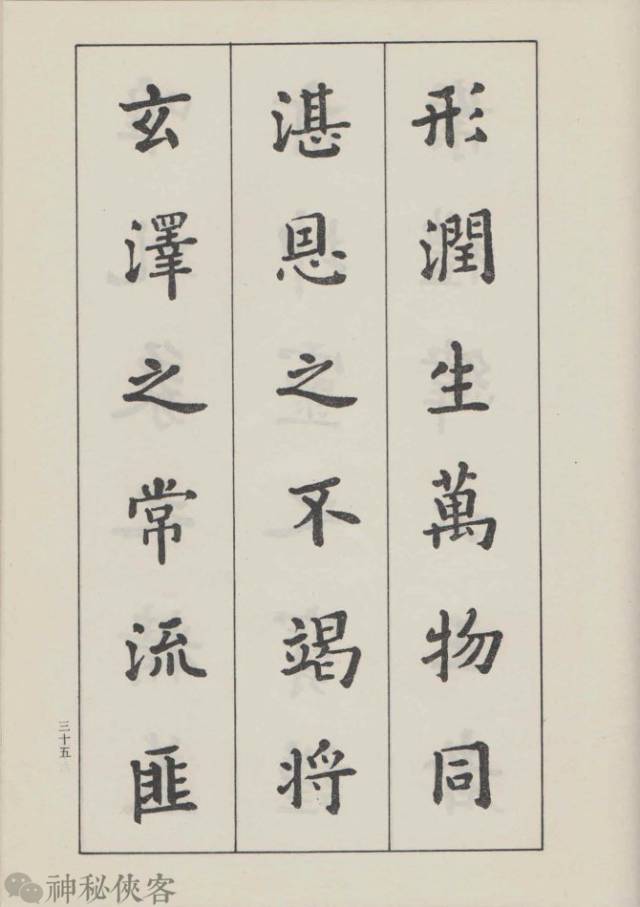 形潤生萬物同
湛恩之不竭将
玄澤之常流匪
三十五
神秘俠客